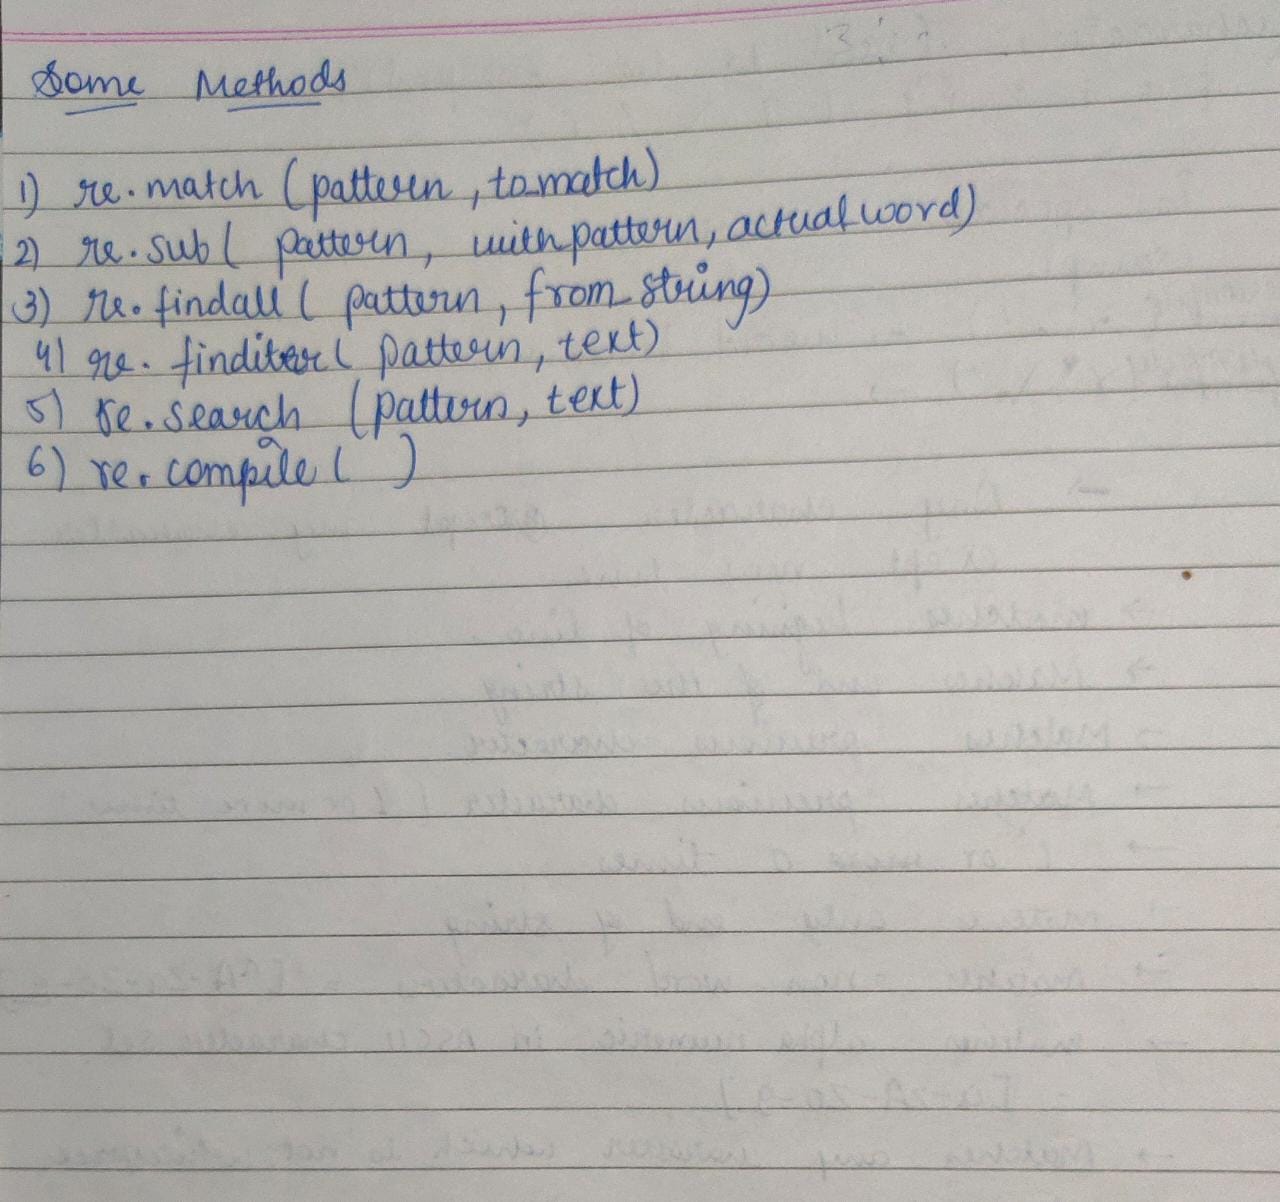 Some Methods
1) re.match (pattern, to match)
2) re.sub( pattern, with pattern, actual word)
3) re.findall ( pattern, from string)
4) re.finditer( pattern, text)
5) re.search (pattern, text)
6) re.compile( )